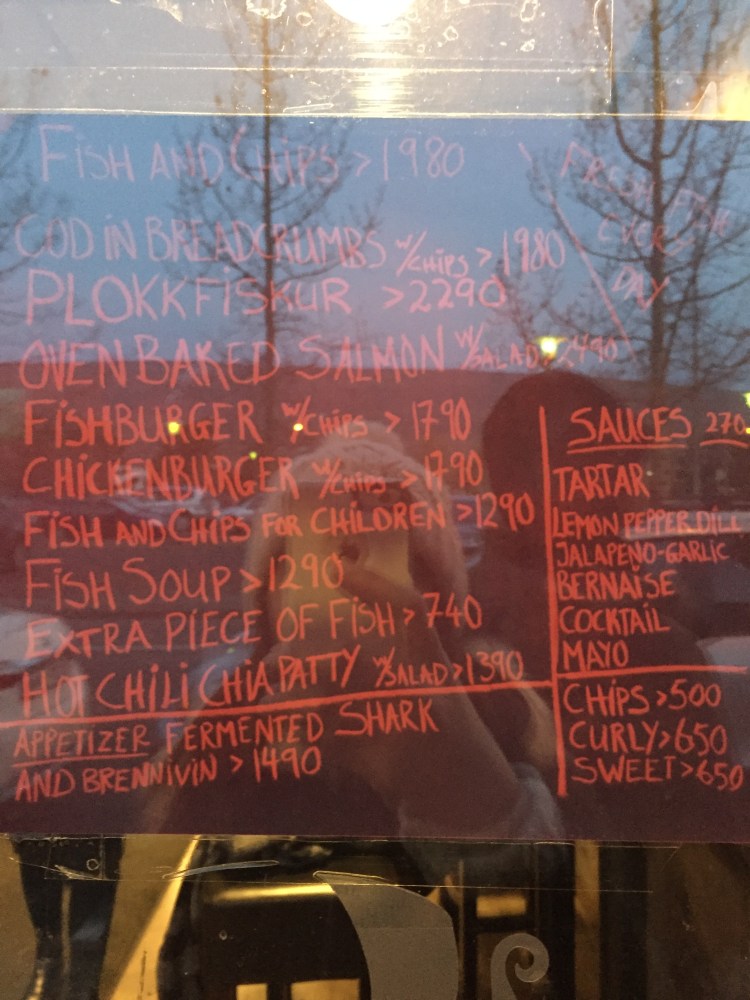 FISH AND CHIPS > 1980
FRESH FISH
EVERY
DAY
COD IN BREADCRUMBS W/CHIPS > 1980
PLOKKFISKUR > 2290
OVEN BAKED SALMON W/SALAD 2490
FISHBURGER W/CHIPS > 1790
CHICKENBURGER W/CHIPS > 1790
FISH AND CHIPS FOR CHILDREN > 1290
FISH SOUP > 1290
EXTRA PIECE OF FISH > 740
HOT CHILI CHIA PATTY W/SALAD > 1390
APPETIZER FERMENTED SHARK
AND BRENNIVIN > 1490
SAUCES 270
TARTAR
LEMON PEPPER DILL
JALAPEÑO-GARLIC
BERNAISE
COCKTAIL
MAYO
CHIPS > 500
CURLY > 650
SWEET > 650